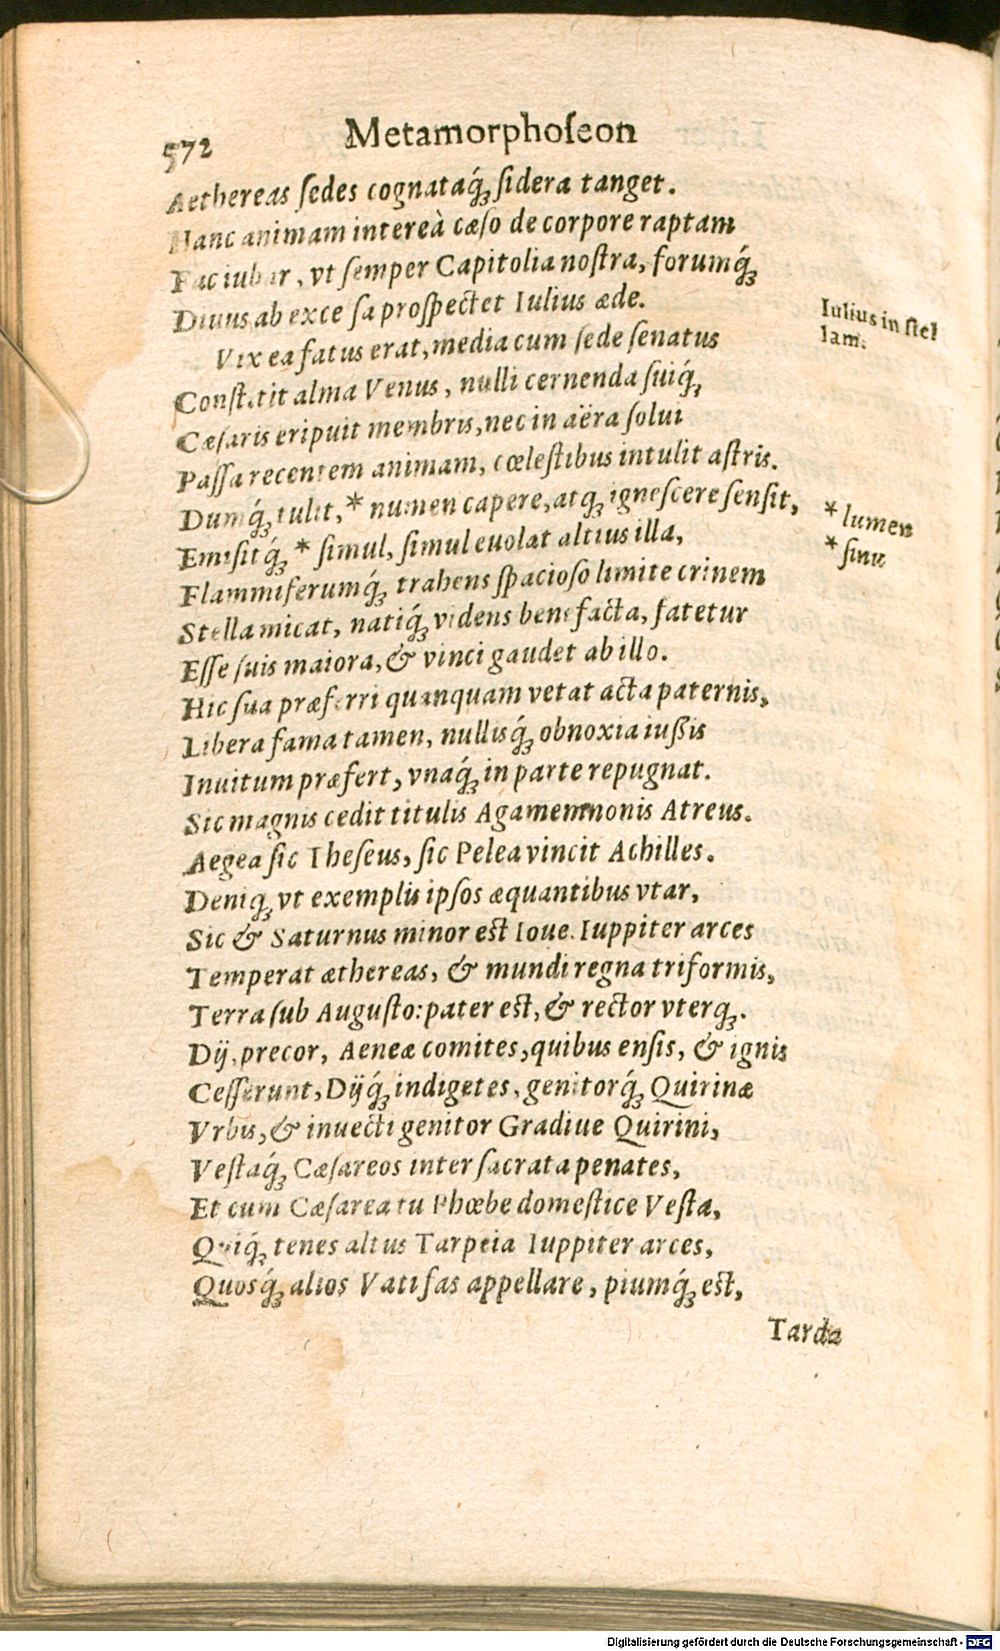 572 Metamorphoſeon
Aethereas ſedes cognataq́ꝫ ſidera tanget.
Hanc animam intereà cæſo de corpore raptam
Fac iubar, vt ſemper Capitolia noſtra, forumq́ꝫ
Diuus ab exce ſa proſpectet Iulius æde.
Iulius in ſtel
lam.
Vix ea fatus erat, media cum ſede ſenatus
Conſtitit alma Venus, nulli cernenda ſuiq́ꝫ
Cæſaris eripuit membris, nec in aëra ſolui
Paſſa recentem animam, cœleſtibus intulit aſtris.
Dumq́ꝫ tulit, * numen capere, atqꝫ igneſcere ſenſit,
* lumen
Emiſitq́ꝫ * ſimul, ſimul euolat altius illa,
* ſinu
Flammiferumq́ꝫ trahens ſpacioſo limite crinem
Stella micat, natiq́ꝫ videns benefacta, fatetur
Eſſe ſuis maiora, & vinci gaudet ab illo.
Hic ſua præferri quanquam vetat acta paternis,
Libera fama tamen, nullisq́ꝫ obnoxia iußis
Inuitum præfert, vnaq́ꝫ in parte repugnat.
Sic magnis cedit titulis Agamemnonis Atreus.
Aegea ſic Theſeus, ſic Pelea vincit Achilles.
Deniqꝫ vt exemplis ipſos æquantibus vtar,
Sic & Saturnus minor eſt Ioue. Iuppiter arces
Temperat æthereas, & mundi regna triformis,
Terra ſub Auguſto: pater eſt, & rector vterqꝫ.
Dij, precor, Aeneæ comites, quibus enſis, & ignis
Ceſſerunt, Dijq́ꝫ indigetes, genitorq́ꝫ Quirinæ
Vrbis, & inuecti genitor Gradiue Quirini,
Veſtaq́ꝫ Cæſareos inter ſacrata penates,
Et cum Cæſarea tu Phœbe domeſtice Veſta,
Quiq́ꝫ tenes altus Tarpeia Iuppiter arces,
Quosq́ꝫ alios Vati fas appellare, piumq́ꝫ eſt,
Tarda
Digitalisierung gefördert durch die Deutsche Forschungsgemeinschaft - DFG